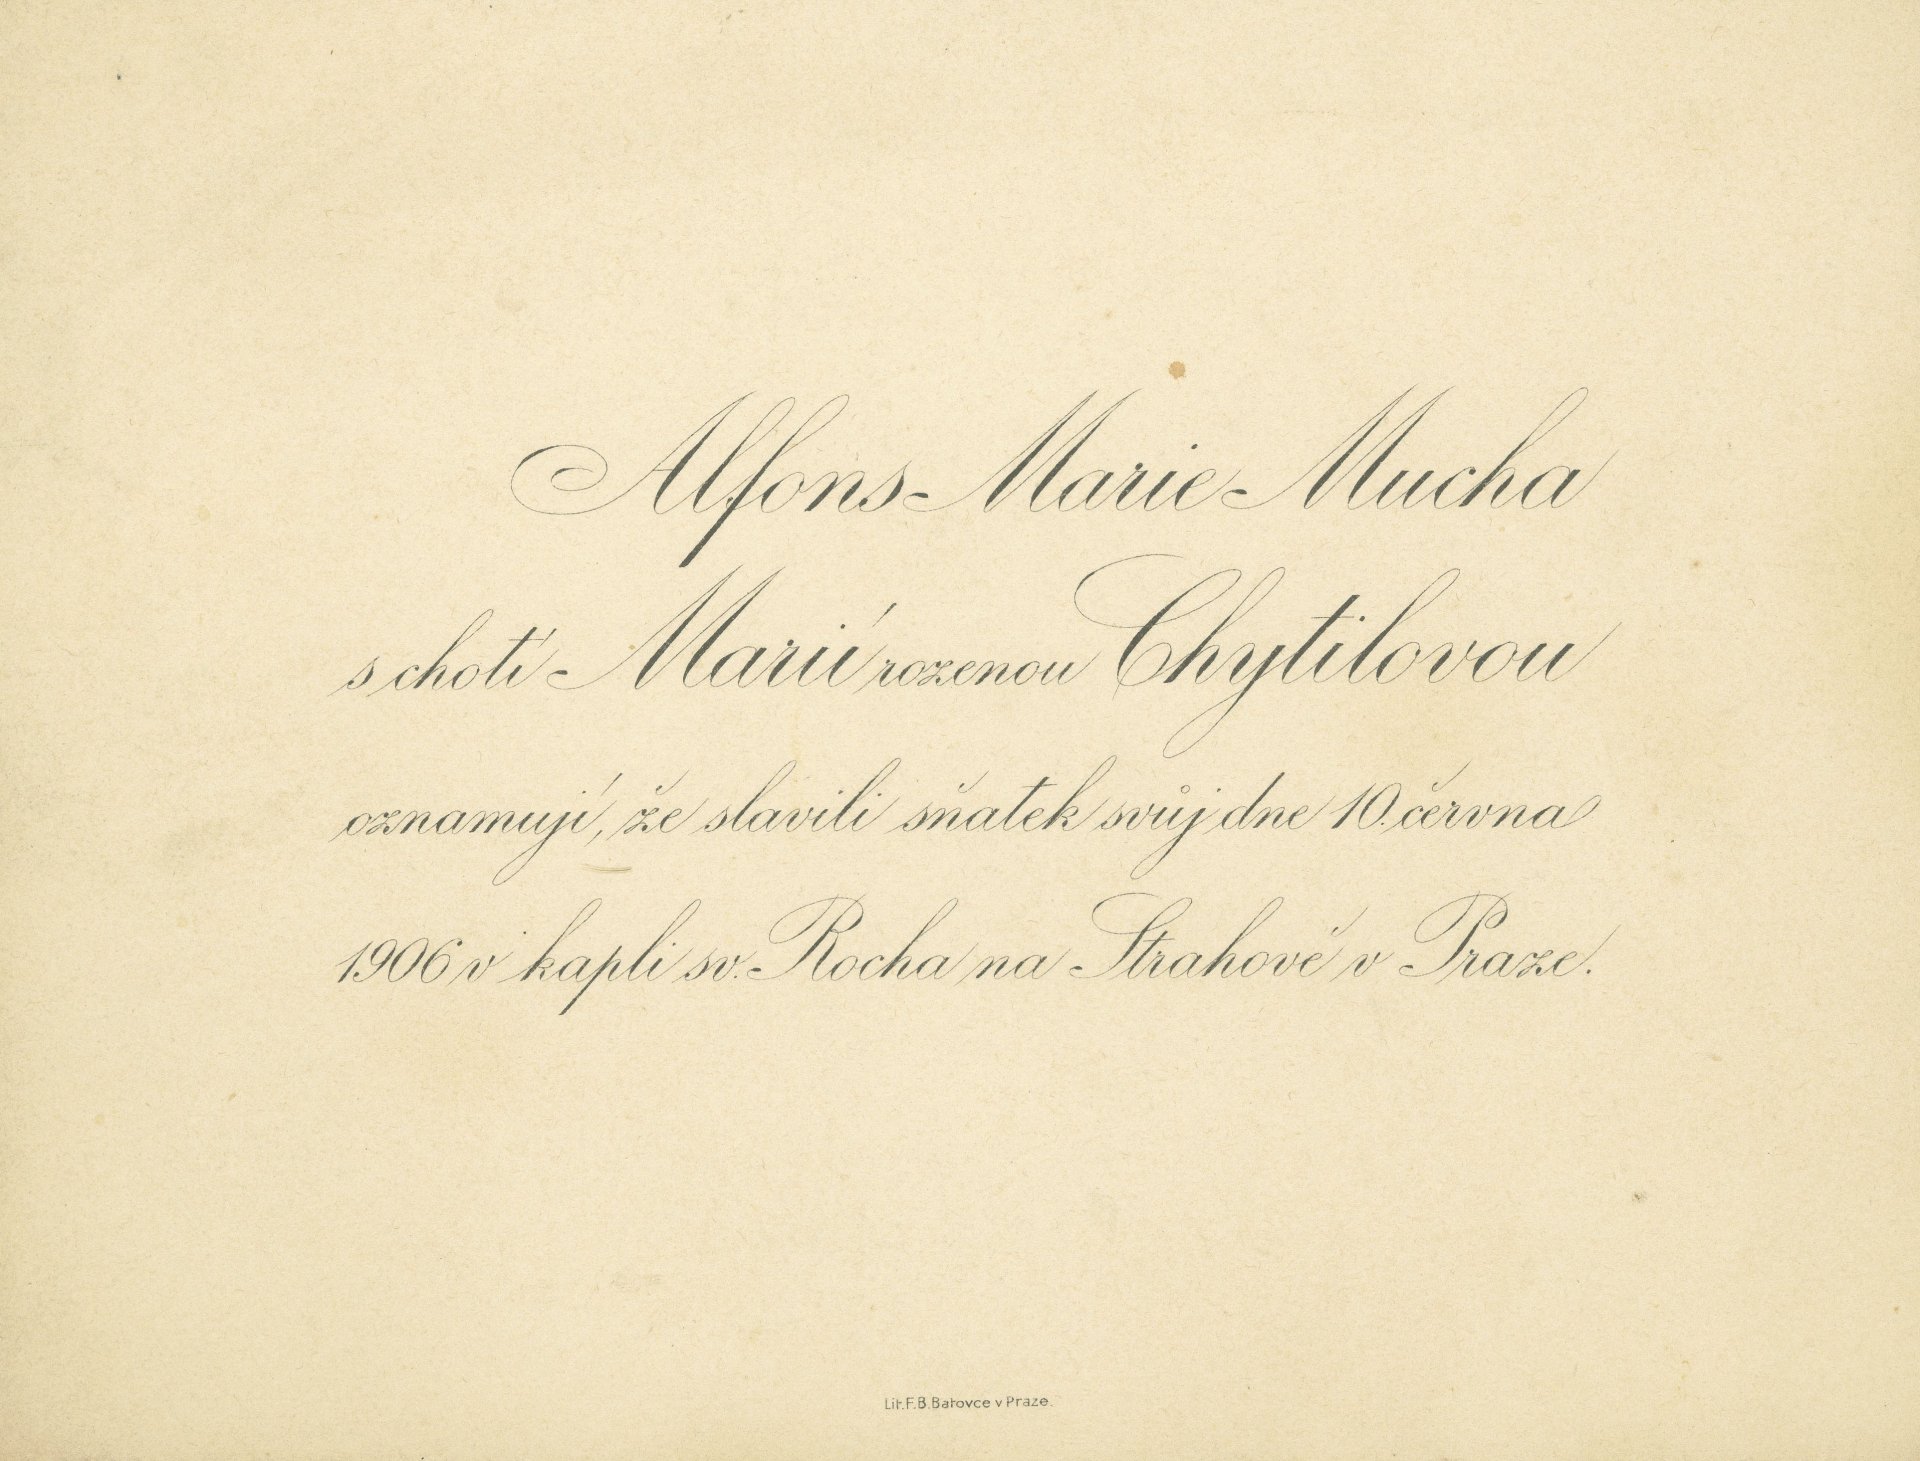 Alfons Marie Mucha
s chotí Marií rozenou Chytilovou
oznamují, že slavili sňatek svůj dne 10. června
1906 v kapli sv. Rocha na Strahově v Praze.
Lit. F. B. Batovce v Praze.